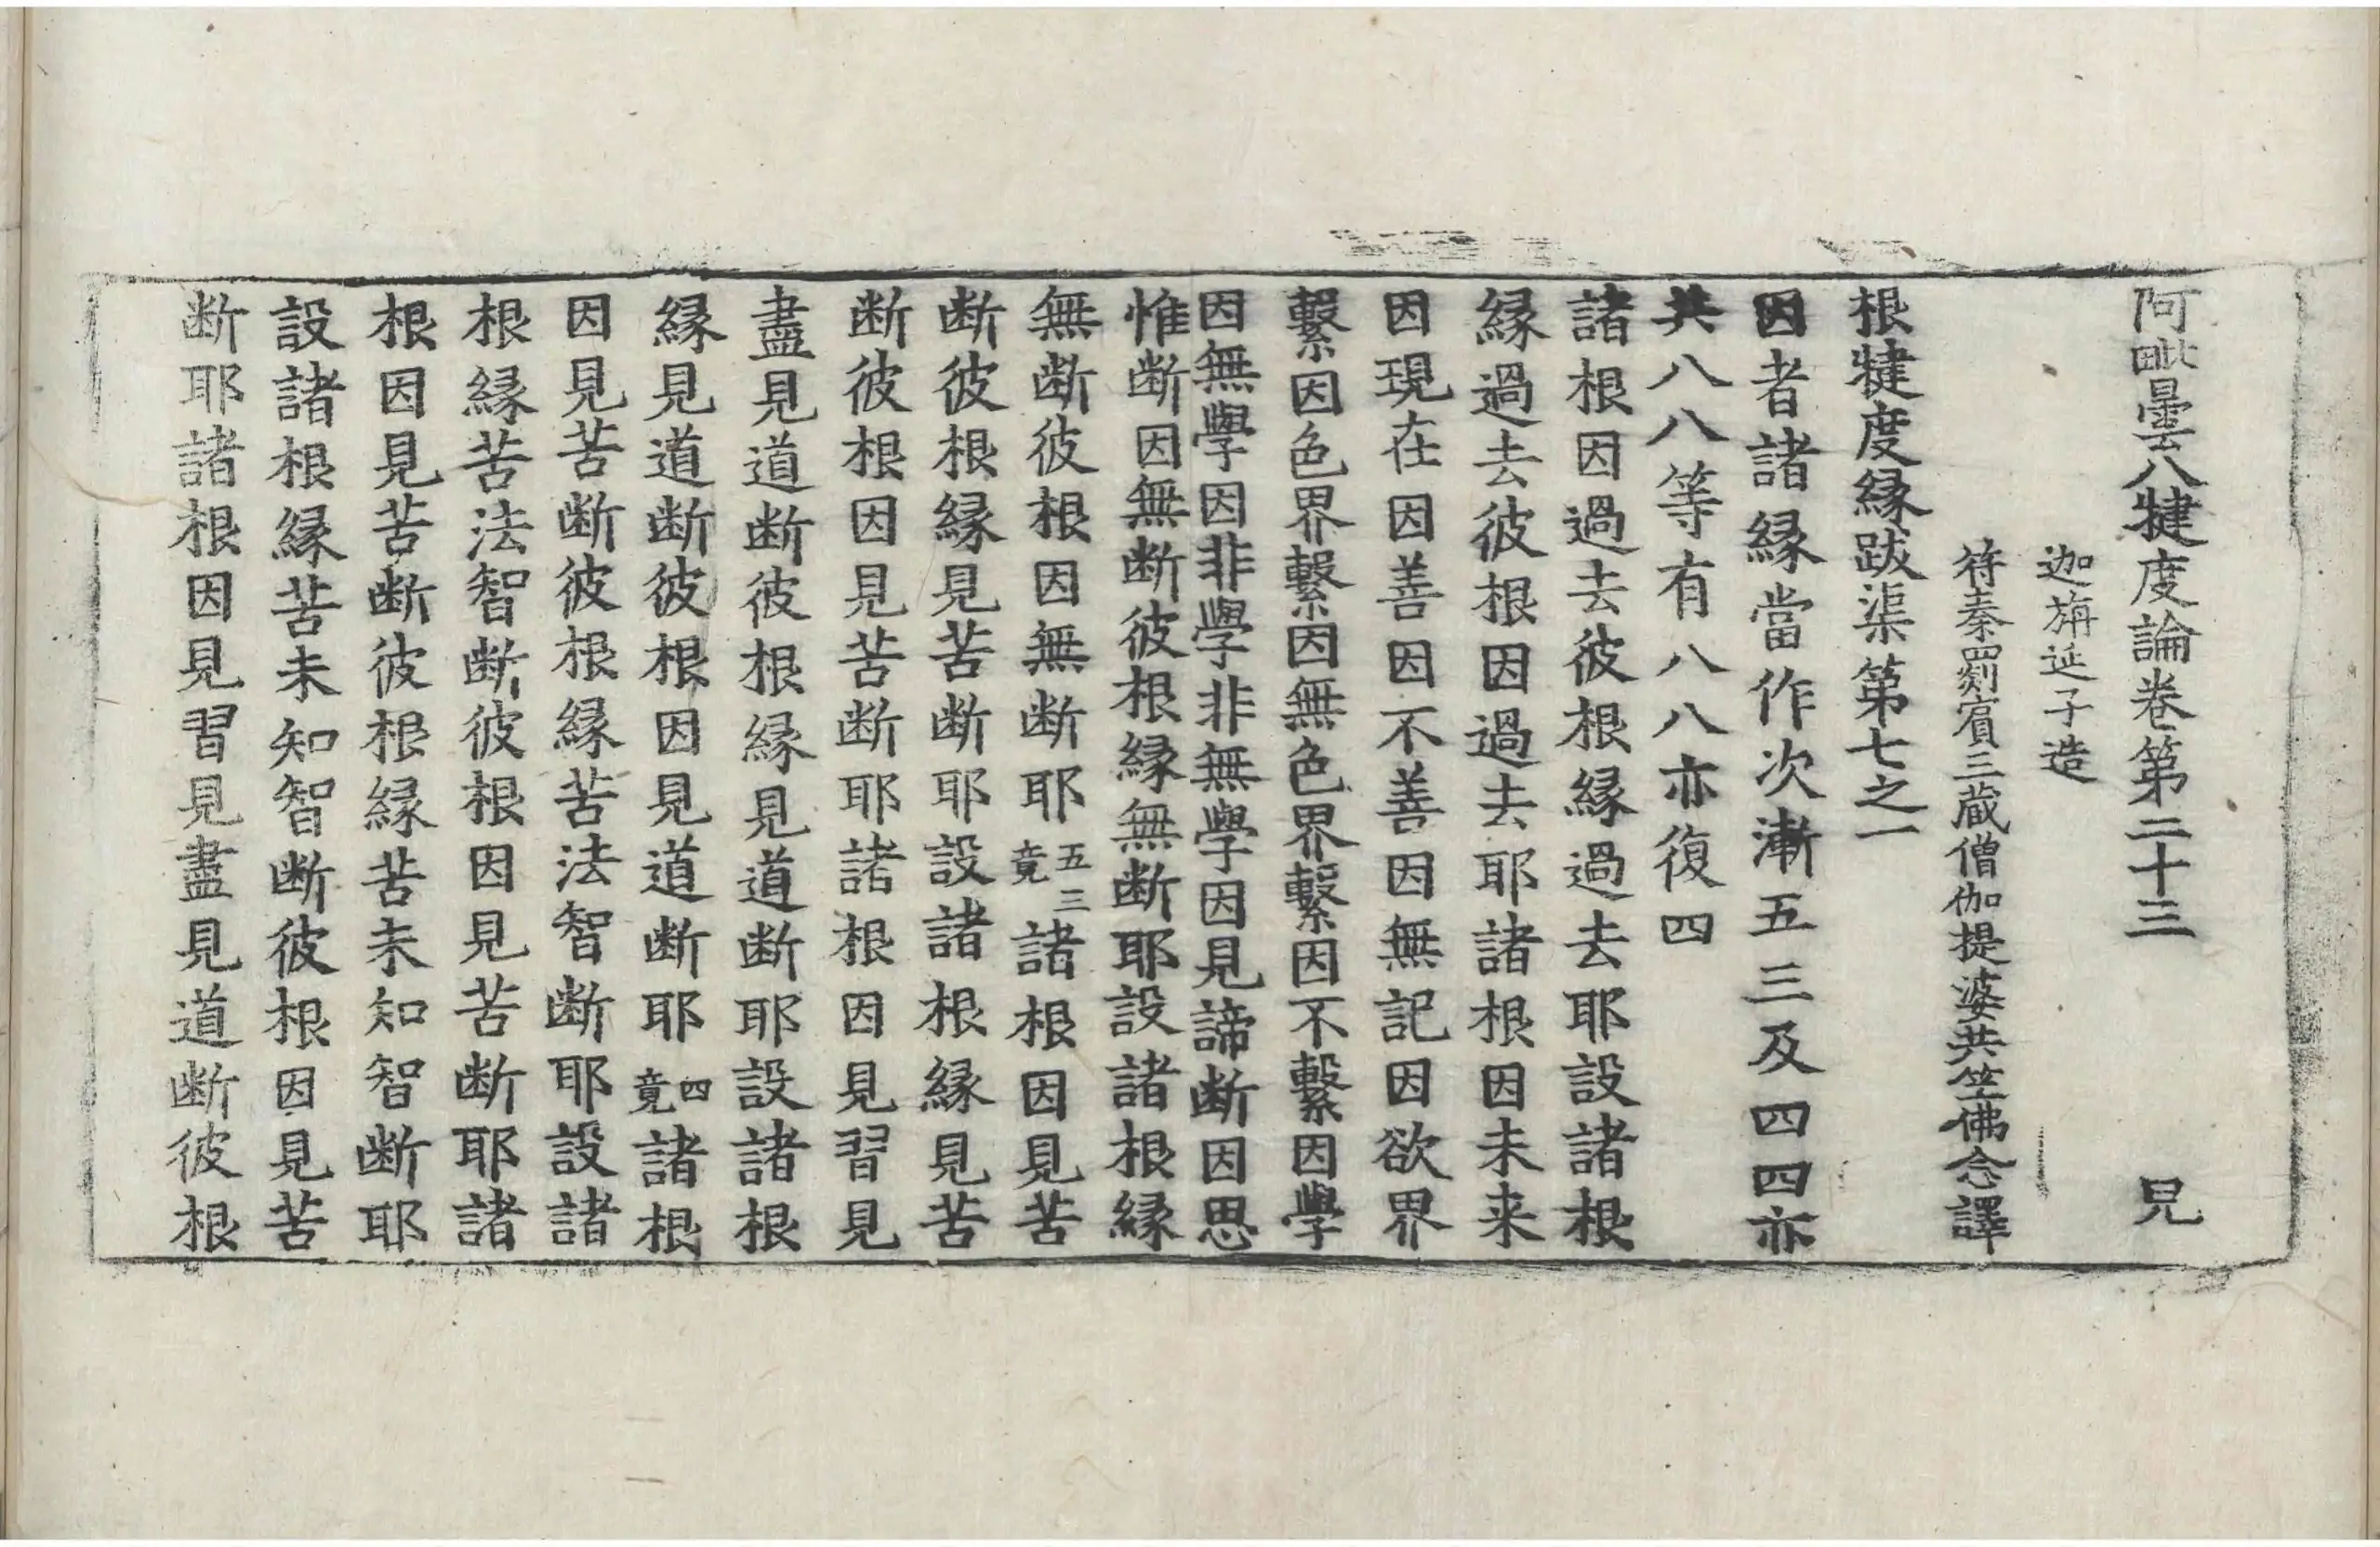 阿毗曇八犍度論卷第二十三　兄
迦旃延子造
符秦罽賓三藏僧伽提婆共竺佛念譯
根犍度緣跋渠第七之一
因者諸緣當作次漸五三及四四亦
共八八等有八八亦復四
諸根因過去彼根緣過去耶設諸根
緣過去彼根因過去耶諸根因未来
因現在因善因不善因無記因欲界
繫因色界繫因無色界繫因不繫因學
因無學因非學非無學因見諦断因思
惟断因無断彼根緣無断耶設諸根緣
無断彼根因無断耶五三竟諸根因見苦
断彼根緣見苦断耶設諸根緣見苦
断彼根因見苦断耶諸根因見習見
盡見道断彼根緣見道断耶設諸根
緣見道断彼根因見道断耶四竟諸根
因見苦断彼根緣苦法智断耶設諸
根緣苦法智断彼根因見苦断耶諸
根因見苦断彼根緣苦未知智断耶
設諸根緣苦未知智断彼根因見苦
断耶諸根因見習見盡見道断彼根